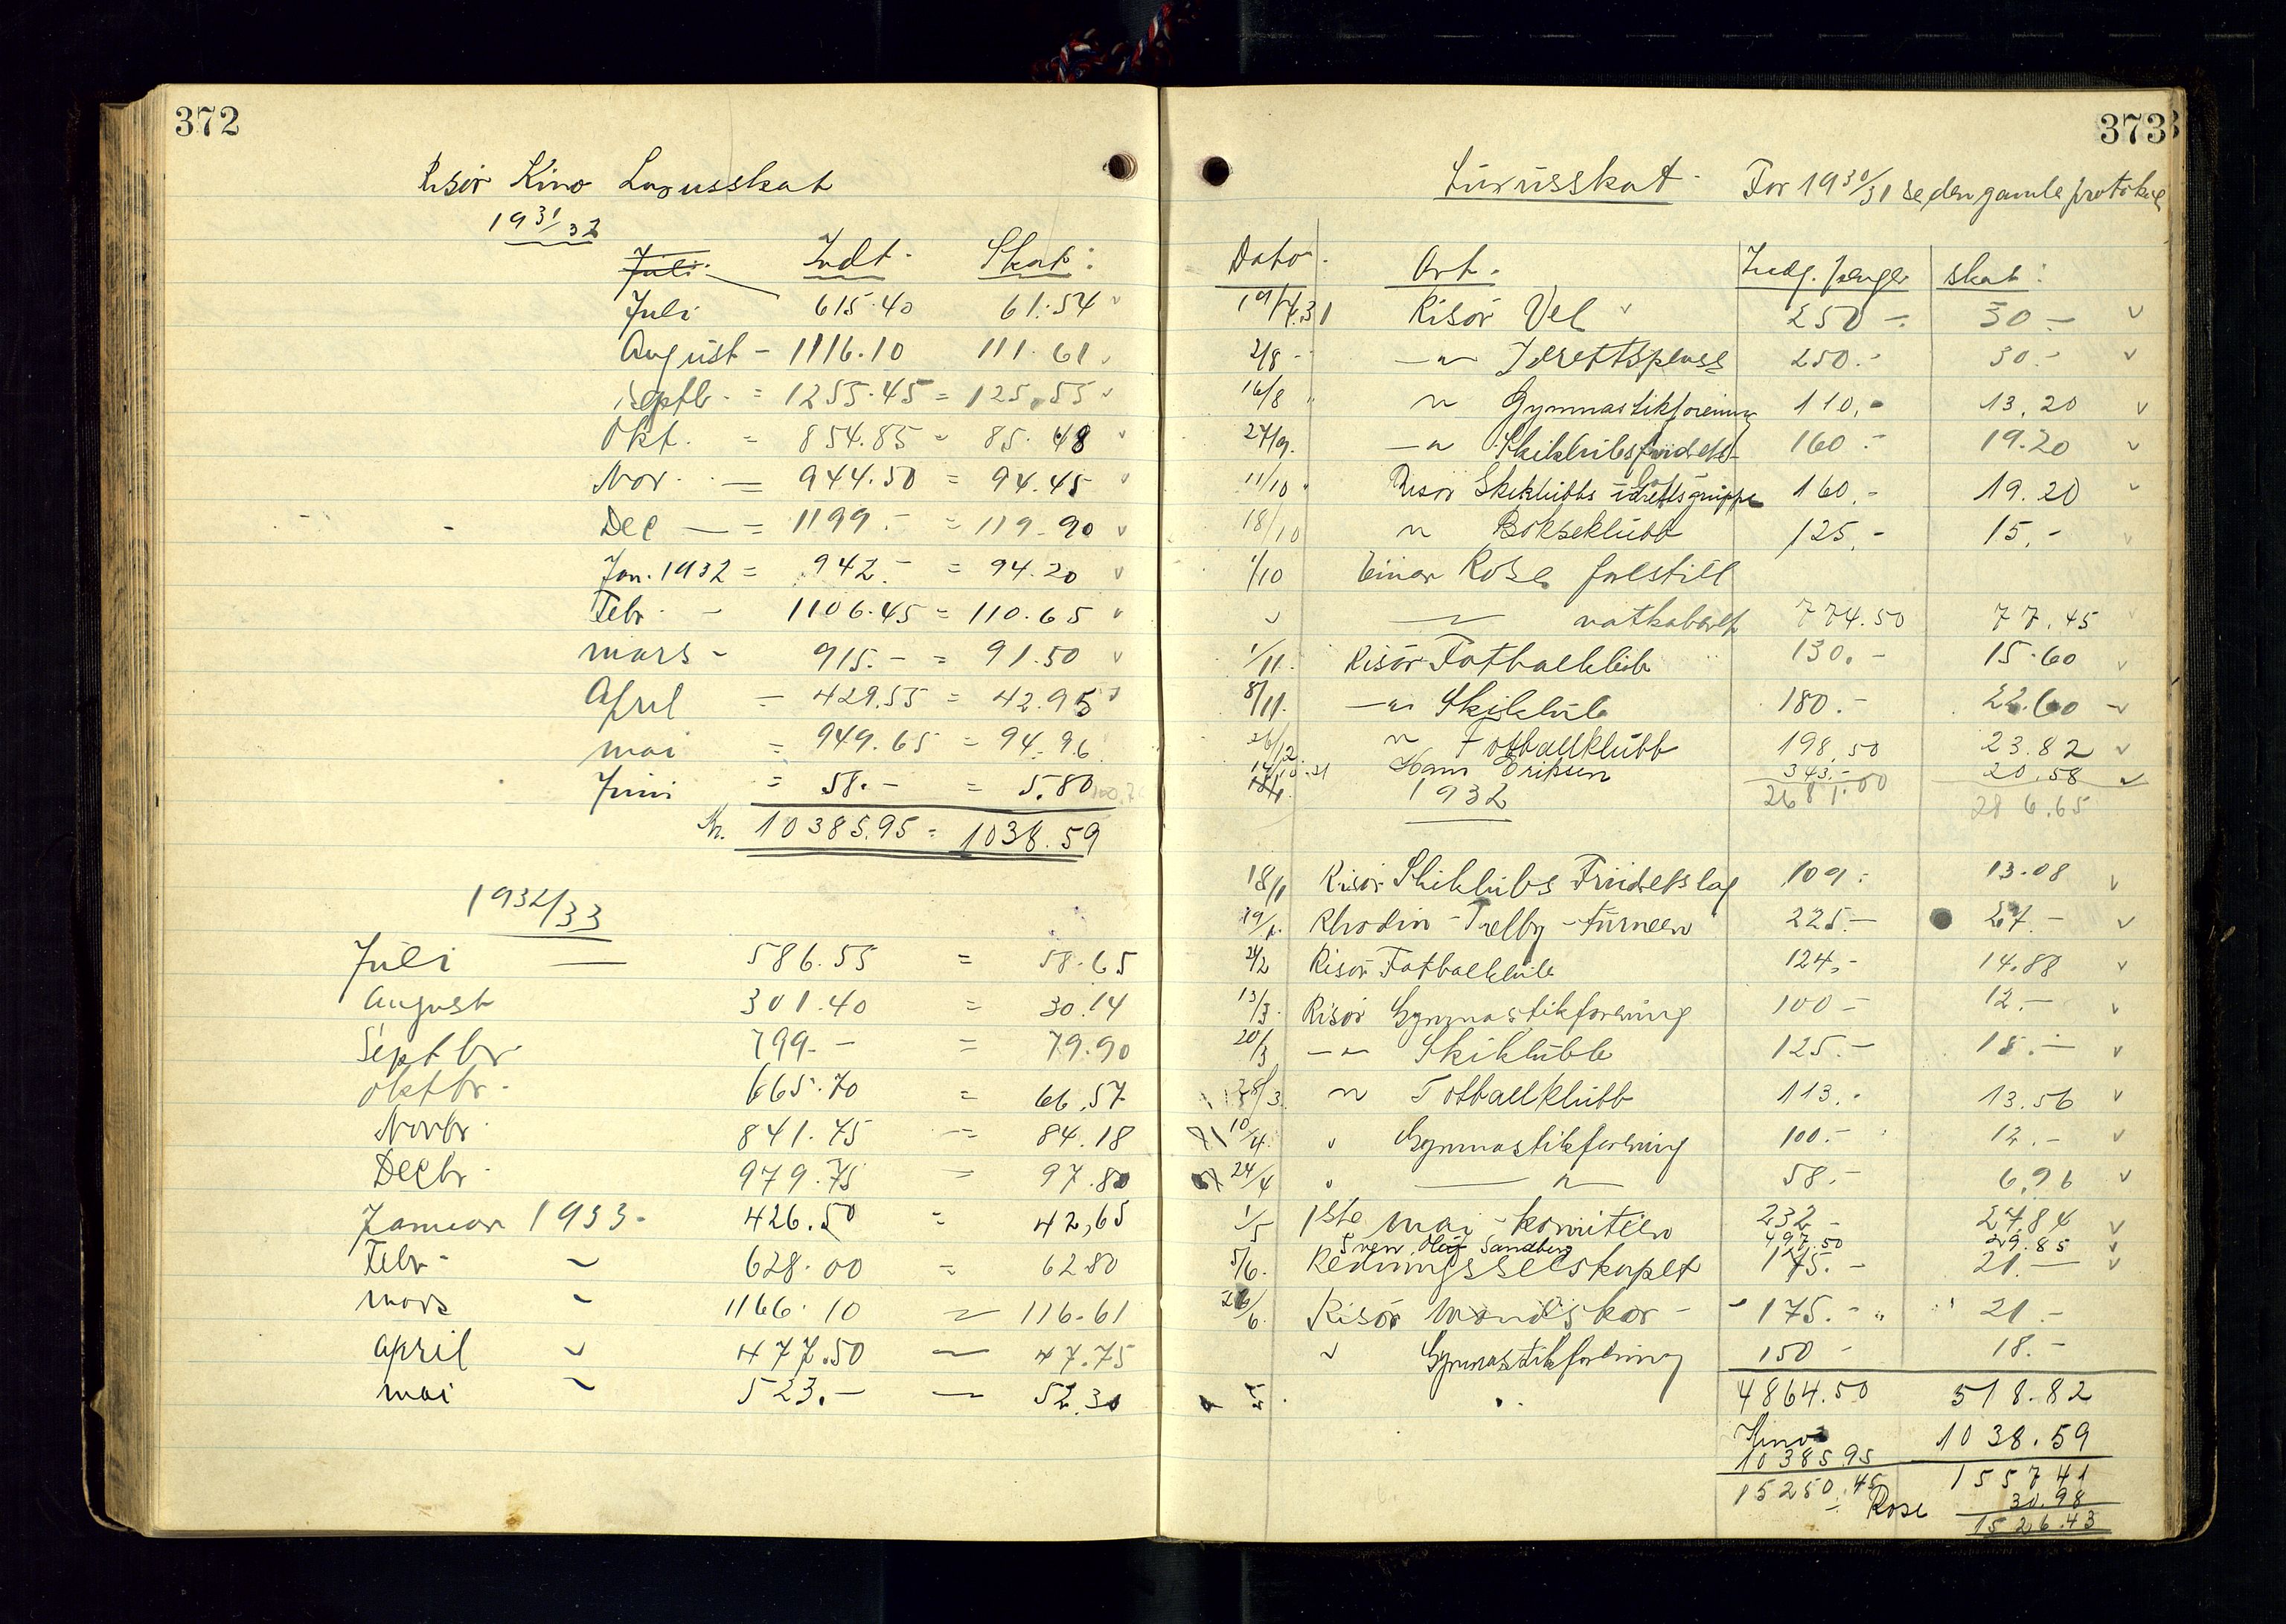 372
Risör Kino Luxusskat
1931/32
Juli Indt. Skat:
Juli 615.40 61.54
August - 1116.10 111.61
Septb. = 1255.45 = 125.55
Okt. = 854.85 = 85.48
Nov. = 944.50 = 94.45
Dec = 1199.- = 119.90
Jan. 1932 = 942.- = 94.20
Febr. - 1106.45 = 110.65
mars - 915.- = 91.50
April - 429.55 = 42.95
mai = 949.65 = 94.96
Juni = 58.- = 5.80
Kr. 10385.95 = 1038.59
1932/33
Juli 586.55 = 58.65
August 301.40 = 30.14
Septbr. 799.- = 79.90
Oktbr. 665.70 = 66.57
Novbr. 841.75 = 84.18
Decbr. 979.75 = 97.80
Januar 1933 - 426.50 = 42,65
Febr - 628.00 = 62.80
mars 1166.10 = 116.61
April 477.50 - 47.75
mai 523.- - 52.30
373
Luxusskat - For 1930/31 se den gamle protokol
Dato. Art. Indg. penger skat:
19/7.31 Risör Vel 250 -. 30 -
2/8 - -"- Idrettsplass 250.- 30.-
16/8 " " Gymnastikforening 110.- 13.20
27/9. -"- Skiklubs 160.- 19.20
11/10 " Risör Skiklubbs idrettsgruppe 160.- 19.20
18/10 " Bokseklubb 125.- 15.-
1/10 Einar Rose forestill
" -"- natkabaret 774.50 77.45
1/11. Risör Fotballklub 130.- 15.60
8/11. -"- Skiklub 180.- 22.60
26/12. " Fotballklubb 198.50 23.82
Hans Eriksen 343.- 20.58
1932 2681.00 286.65
18/1 Risör Skiklubs Friidretslag 109.- 13.08
19/1. Rhodin - Trelby - Turneen 225.- 27.-
21/2 Risör Fotballklub 124.- 14.88
13/3. Risör Gymnastikforening 100 - 12.-
20/3 -"- Skiklubb 125.- 15.-
28/3. " Fotballklubb 113.- 13.56
10/4. " Gymnastikforening 100.- 12.-
24/4 " -"- 58.- 6.96
1/5 1ste mai - komitéen 232 - 27.84
Sven Oluf Sandberg 497.50 29.85
5/6. Redningsselskapet 175.- 21.-
26/6. Risör Mandskor - 175.- 21.-
" Gymnastikforening 150 - 18.-
4864.50 518.82
Kino
10385.95 1038.59
15250.45 1557.41
÷ Rose 30.98
1526.43